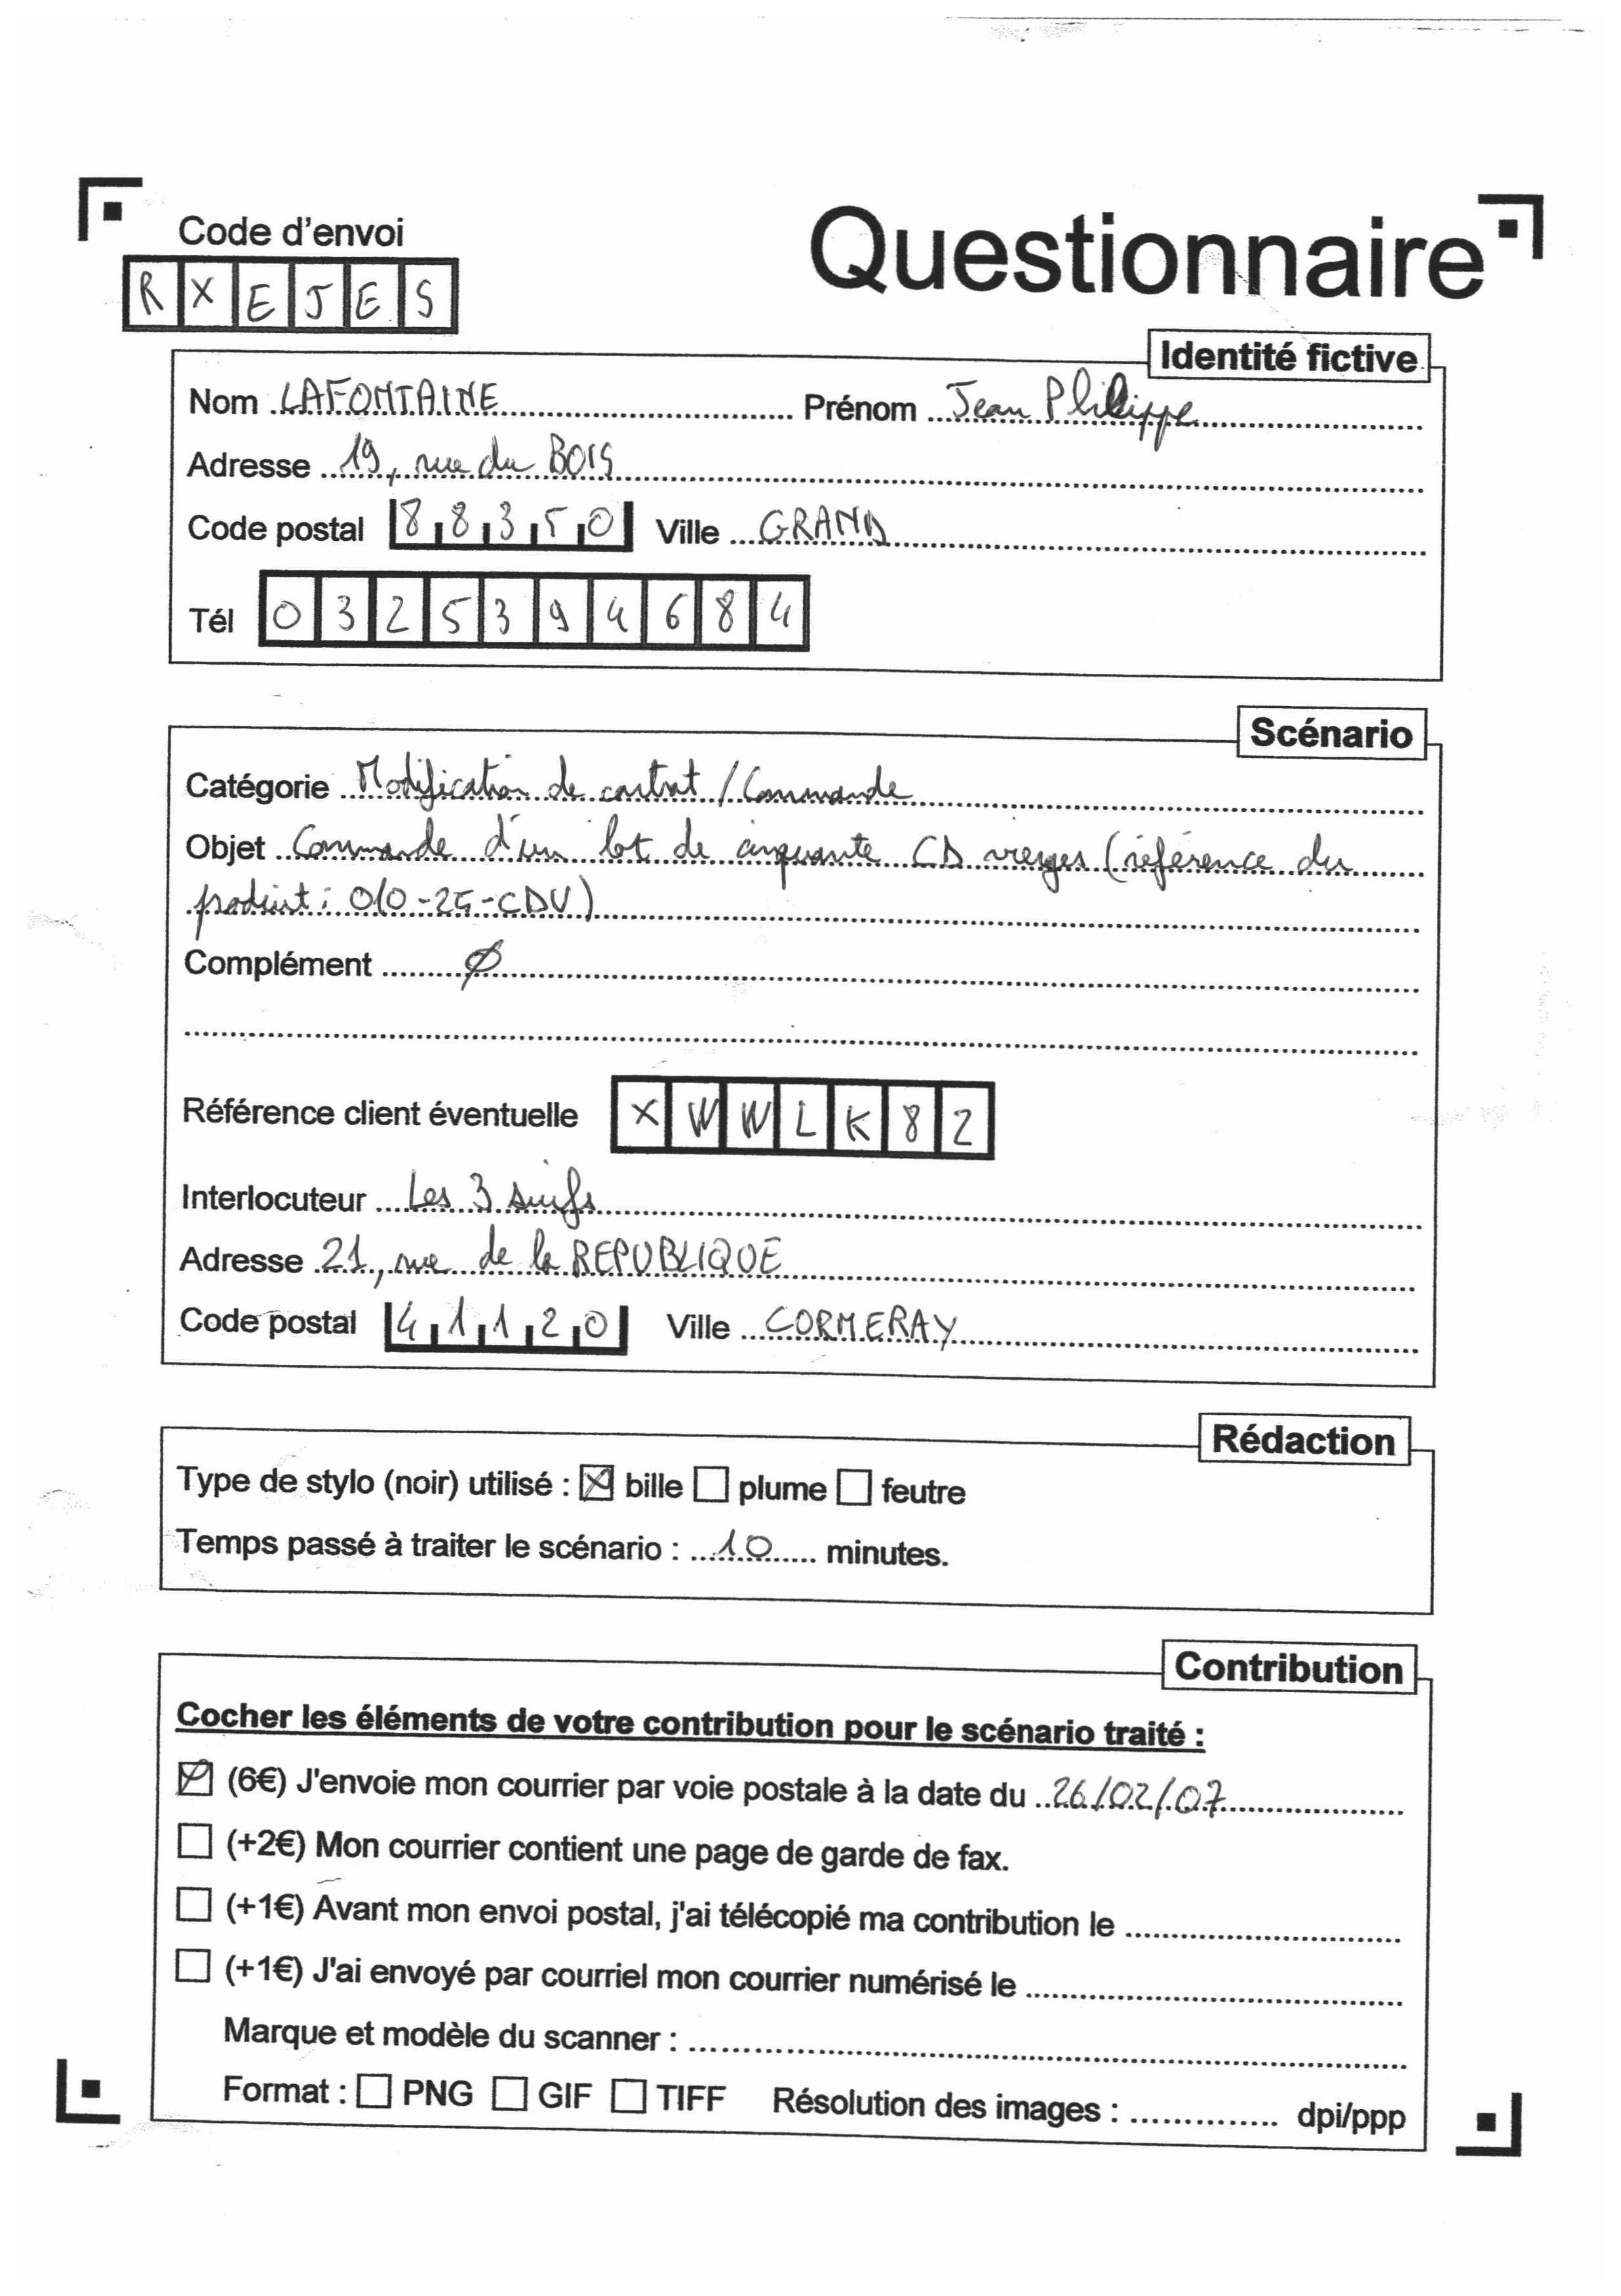 Code d'envoi
Questionnaire
R X E J E S
Identité fictive
Nom LAFONTAINE Prénom Jean Philippe
Adresse 19, rue du BOIS
Code postal 88350 Ville GRAND
Tél 0325394684
Scénario
Catégorie Modification de contrat / Commande
Objet Commande d'un lot de cinquante CD vierges (référence du
produit : 010-25-CDV)
Complément ∅
Référence client éventuelle X W W L K 8 2
Interlocuteur Les 3 suifs
Adresse 21, rue de la REPUBLIQUE
Code postal 41120 Ville CORMERAY
Rédaction
Type de stylo (noir) utilisé : ☒ bille ☐ plume ☐ feutre
Temps passé à traiter le scénario : 10 minutes.
Contribution
Cocher les éléments de votre contribution pour le scénario traité :
☒ (6€) J'envoie mon courrier par voie postale à la date du 26/02/07
☐ (+2€) Mon courrier contient une page de garde de fax.
☐ (+1€) Avant mon envoi postal, j'ai télécopié ma contribution le
☐ (+1€) J'ai envoyé par courriel mon courrier numérisé le
Marque et modèle du scanner :
Format : ☐ PNG ☐ GIF ☐ TIFF Résolution des images : dpi/ppp